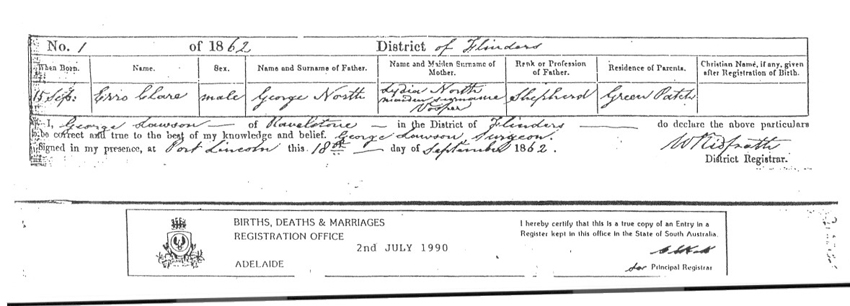 No. 1 of 1862 District of Flinders
When Born. Name. Sex. Name and Surname of Father. Name and Maiden Surname of Mother. Rank or Profession of Father. Residence of Parents. Christian Name, if any, given after Registration of Birth.
15 Sep: Erro Clare male George North Lydia North maiden surname Vosper Shepherd Green Patch
I, George Lawson of Ravelstone in the District of Flinders do declare the above particulars
to be correct and true to the best of my knowledge and belief. George Lawson Surgeon.
Signed in my presence, at Port Lincoln this 18th day of September 1862.
District Registrar.
BIRTHS, DEATHS & MARRIAGES
REGISTRATION OFFICE
2nd JULY 1990
ADELAIDE
I hereby certify that this is a true copy of an Entry in a
Register kept in this office in the State of South Australia.
for Principal Registrar